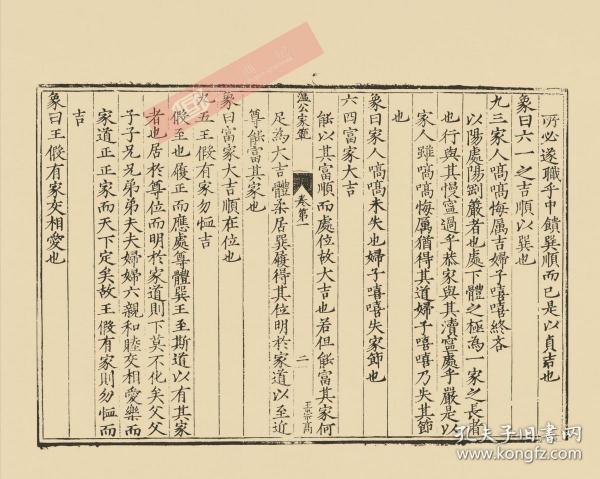 所必遂職乎中饋巽順而已是以貞吉也
象曰六二之吉順以巽也
九三家人嗃嗃悔厲吉婦子嘻嘻終吝
以陽處陽剛嚴者也處下體之極為一家之長者
也行與其慢寧過乎恭家與其瀆寧處乎嚴是以
家人雖嗃嗃悔厲猶得其道婦子嘻嘻乃失其節
也
象曰家人嗃嗃未失也婦子嘻嘻失家節也
六四富家大吉
能以其富順而處位故大吉也若但能富其家何
溫公家範 卷第一 二
足為大吉體柔居巽履得其位明於家道以至近
尊能富其家也
象曰富家大吉順在位也
九五王假有家勿恤吉
假至也履正而應處尊體巽王至斯道以有其家
者也居於尊位而明於家道則下莫不化矣父父
子子兄兄弟弟夫夫婦婦六親和睦交相愛樂而
家道正正家而天下定矣故王假有家則勿恤而
吉
象曰王假有家交相愛也
孔夫子旧書网
www.kongfz.com